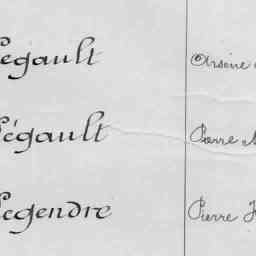 Legault Arsène
Légault Pierre
Legendre Pierre